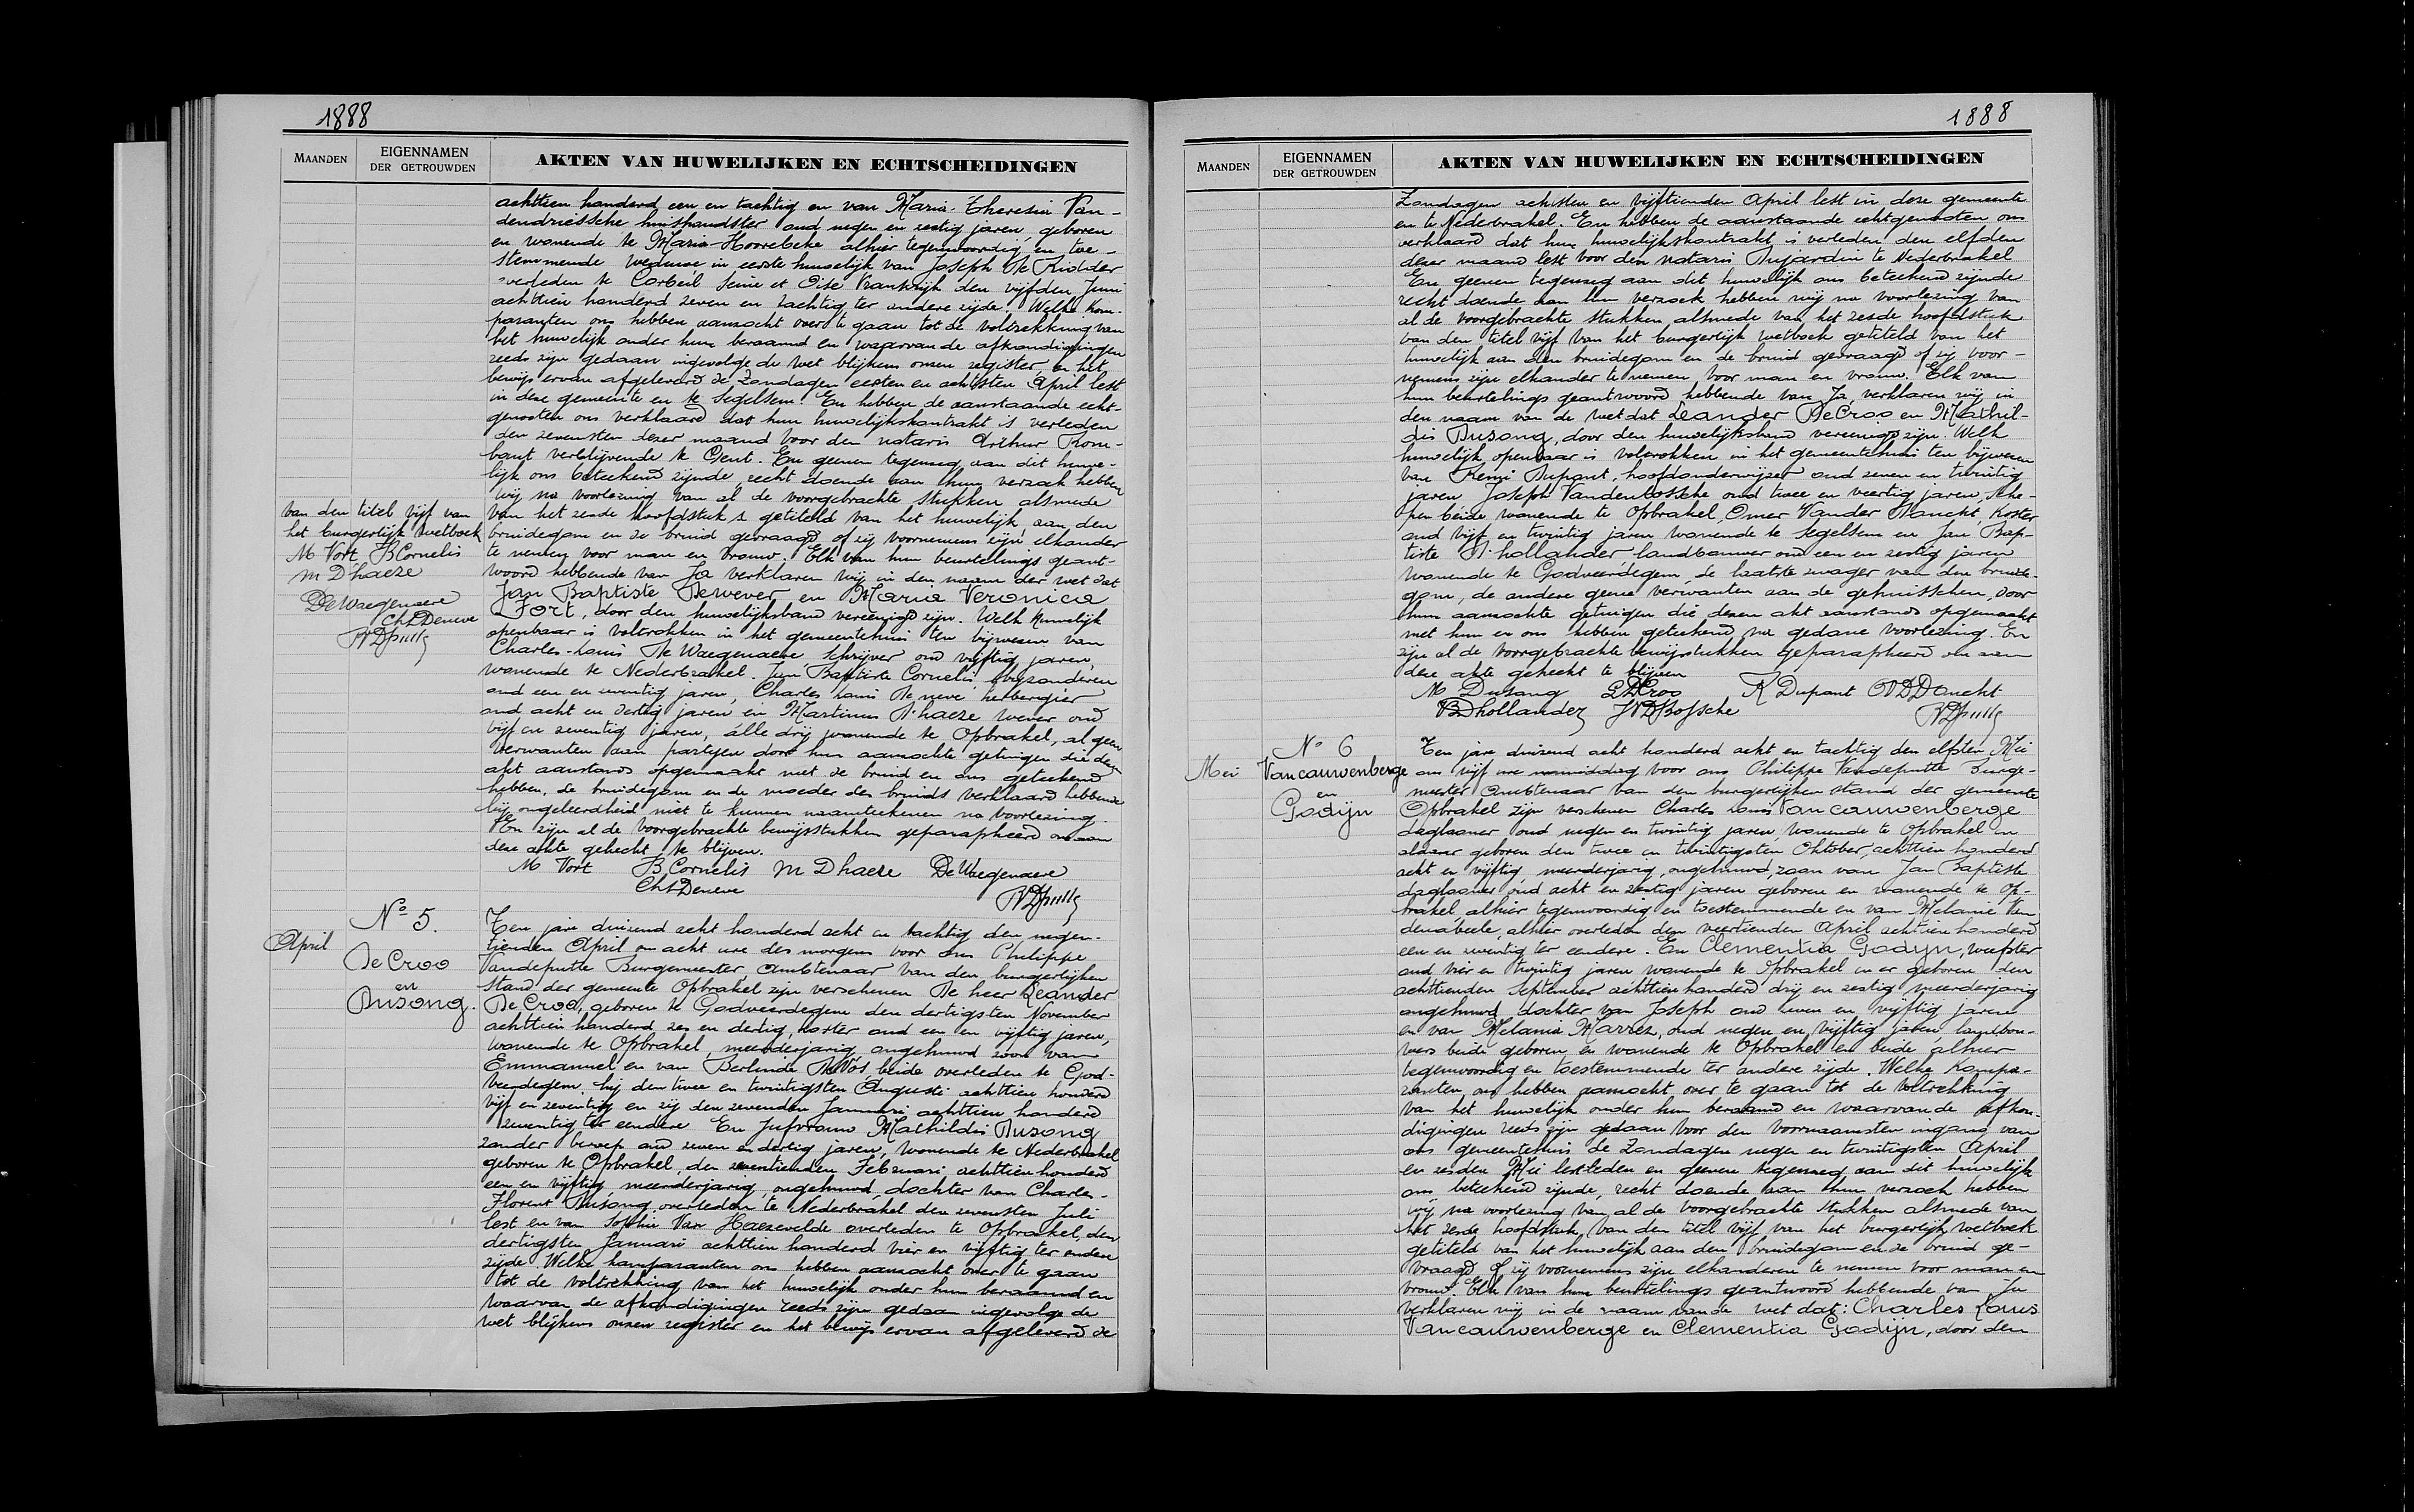 1888
MAANDEN
EIGENNAMEN
DER GETROUWDEN
AKTEN VAN HUWELIJKEN EN ECHTSCHEIDINGEN
achttien honderd een en tachtig en van Maria-Theresia Van-
dendriessche huishoudster oud negen en zestig jaren, geboren
en wonende te Maria-Hoorebeke alhier tegenwoordig en toe-
stemmende weduwe in eerste huwelijk van Joseph De Ridder
overleden te Corbeil Seine et Oise Frankrijk den vijfden Juni
achttien honderd zeven en zachtig ter andere zijde. Welke kom-
paranten ons hebben aanzocht over te gaan tot de voltrekking van
het huwelijk onder hun beraamd en waarvan de afkondigingen
reeds zijn gedaan ingevolge de wet blijkens onzen register en het
bewijs ervan afgeleverd de Zondagen eersten en achtsten April lest
in deze gemeente en te Segelsem. En hebben de aanstaande echt-
genooten ons verklaard dat hun huwelijkskontrakt is verleden
den zevensten dezer maand voor den notaris Arthur Rom-
baut verblijvende te Gent. En geenen tegenzeg aan dit huwe-
lijk ons beteekend zijnde, recht doende aan hun verzoek hebben
wij na voorlezing van al de voorgebrachte stukken alsmede
van het zesde hoofdstuk getiteld van het huwelijk aan den
bruidegom en de bruid gevraagd of zij voornemens zijn elkander
te nemen voor man en vrouw. Elk van hun beurtelings geant-
woord hebbende van Ja verklaren wij in den naam der wet dat
Jan Baptiste Dewever en Maria Veronica
Fort, door den huwelijksband vereenigd zijn. Welk huwelijk
openbaar is voltrokken in het gemeentehuis ten bijwezen van
Charles-Louis De Waegenaere schrijver oud vijftig jaren,
wonende te Nederbrakel. Jan Baptiste Cornelis bijzonderen
oud een en zeventig jaren, Charles Louis Deneve herbergier
oud acht en dertig jaren en Martinus D'haeze wever oud
vijf en zeventig jaren, alle drij wonende te Opbrakel, al geen
verwanten aan partijen door hun aanzochte getuigen die dezen
akt aanstonds opgemaakt met de bruid en ons geteekend
hebben, de bruidegom en de moeder der bruids verklaard hebbende
bij ongeleerdheid niet te kunnen naamteekenen na voorlezing.
En zijn al de voorgebrachte bewijsstukken geparapheerd om aan
deze akte gehecht te blijven.
M Vort B Cornelis M Dhaeze De Waegenaere
Ch L Deneve
van den titel vijf van
het burgerlijk wetboek
M Vort B Cornelis
M D'haeze
De Waegenaere
Ch L Deneve
April
Nº 5.
De Croo
en
Dusong.
Ten jare duizend acht honderd acht en tachtig den negen-
tienden April om acht ure des morgens voor ons Philippe
Vandeputte Burgemeester, Ambtenaar van den burgerlijken
stand der gemeente Opbrakel zijn verschenen De heer Leander
De Croo, geboren te Godveerdegem den dertigsten November
achttien honderd zes en dertig, koster oud een en vijftig jaren,
wonende te Opbrakel, meerderjarig ongehuwd zoon van
Emmanuel en van Berlinde De Vos, beide overleden te God-
veerdegem hij den twee en twintigsten Augusti achttien honderd
vijf en zeventig en zij den zevenden Januari achttien honderd
zeventig ter eendere En Jufvrouw Mathildis Dusong
zonder beroep oud zeven en dertig jaren, wonende te Nederbrakel
geboren te Opbrakel, den zeventienden Februari achttien honderd
een en vijftig meerderjarig, ongehuwd, dochter van Charles-
Florent Dusong overleden te Nederbrakel den zevensten Juli
lest en van Sophie Van Haezevelde overleden te Opbrakel, den
dertigsten Januari achttien honderd vier en vijftig ter andere
zijde. Welke komparanten ons hebben aanzocht over te gaan
tot de voltrekking van het huwelijk onder hun beraamd en
waarvan de afkondigingen reeds zijn gedaan ingevolge de
wet blijkens onzen register en het bewijs ervan afgeleverd de
1888
MAANDEN
EIGENNAMEN
DER GETROUWDEN
AKTEN VAN HUWELIJKEN EN ECHTSCHEIDINGEN
Zondagen achtsten en vijftienden April lest in deze gemeente
en te Nederbrakel. En hebben de aanstaande echtgenooten ons
verklaard dat hun huwelijkskontrakt is verleden den elfden
dezer maand lest voor den notaris Dujardin te Nederbrakel
En geenen tegenzeg aan dit huwelijk ons beteekend zijnde
recht doende aan hun verzoek hebben wij na voorlezing van
al de voorgebrachte stukken alsmede van het zesde hoofdstuk
van den titel vijf van het burgerlijk wetboek getiteld van het
huwelijk aan den bruidegom en de bruid gevraagd of zij voor-
nemens zijn elkander te nemen voor man en vrouw. Elk van
hun beurtelings geantwoord hebbende van Ja, verklaren wij in
den naam van de wet dat Leander De Croo en Mathil-
dis Dusong, door den huwelijksband vereenigd zijn. Welk
huwelijk openbaar is voltrokken in het gemeentehuis ten bijwezen
van Remi Dupont, hoofdonderwijzer oud zeven en twintig
jaren Joseph Vandenbossche oud twee en veertig jaren, sche-
pen beide wonende te Opbrakel, Omer Vander Donckt, Koster
oud vijf en twintig jaren wonende te Segelsem en Jan Bap-
tiste D'hollander landbouwer oud een en zestig jaren
wonende te Godveerdegem, de laatste zwager van den bruide-
gom, de andere geene verwanten aan de gehuisschen, door
hun aanzochte getuigen die dezen akt aanstonds opgemaakt
met hun en ons hebben geteekend na gedane voorlezing. En
zijn al de voorgebrachte bewijsstukken geparapheerd om aan
deze akte gehecht te blijven
M Dusong L DCroo R Dupont O VDDonckt
B Dhollander J VDBossche
Mei
Nº 6
Vancauwenberge
en
Godijn
Ten jare duizend acht honderd acht en tachtig den elfsten Mei
om vijf ure namiddag voor ons Philippe Vandeputte Burge-
meester Ambtenaar van den burgerlijken stand der gemeente
Opbrakel zijn verschenen Charles Louis Vancauwenberge
daglooner oud negen en twintig jaren wonende te Opbrakel en
aldaar geboren den twee en twintigsten Oktober, achttien honderd
acht en vijftig meerderjarig, ongehuwd, zoon van Jan Baptiste
daglooner oud acht en zestig jaren geboren en wonende te Op-
brakel, alhier tegenwoordig en toestemmende en van Melanie Van
denabeele, alhier overleden den veertienden April achttien honderd
een en zeventig ter eendere. En Clementia Godijn, weefster
oud vier en twintig jaren wonende te Opbrakel en er geboren den
achttienden September achttien honderd drij en zestig meerderjarig
ongehuwd, dochter van Joseph oud zeven en vijftig jaren
en van Melania Marrez, oud negen en vijftig jaren, landbou-
wers beide geboren en wonende te Opbrakel en beide alhier
tegenwoordig en toestemmende ter andere zijde. Welke Kompa-
ranten ons hebben aanzocht over te gaan tot de voltrekking
van het huwelijk onder hun beraamd en waarvan de afkon-
digingen reeds zijn gedaan voor den voornaamsten ingang van
ons gemeentehuis de Zondagen negen en twintigsten April
en zesden Mei lestleden en geenen tegenzeg aan dit huwelijk
ons beteekend zijnde, recht doende aan hun verzoek hebben
wij na voorlezing van al de voorgebrachte stukken alsmede van
het zesde hoofdstuk van den titel vijf van het burgerlijk wetboek
getiteld van het huwelijk aan den bruidegom en de bruid ge-
vraagd of zij voornemens zijn elkanderen te nemen voor man en
vrouw. Elk van hun beurtelings geantwoord hebbende van Ja
verklaren wij in de naam van de wet dat: Charles Louis
Vancauwenberge en Clementia Godijn, door den